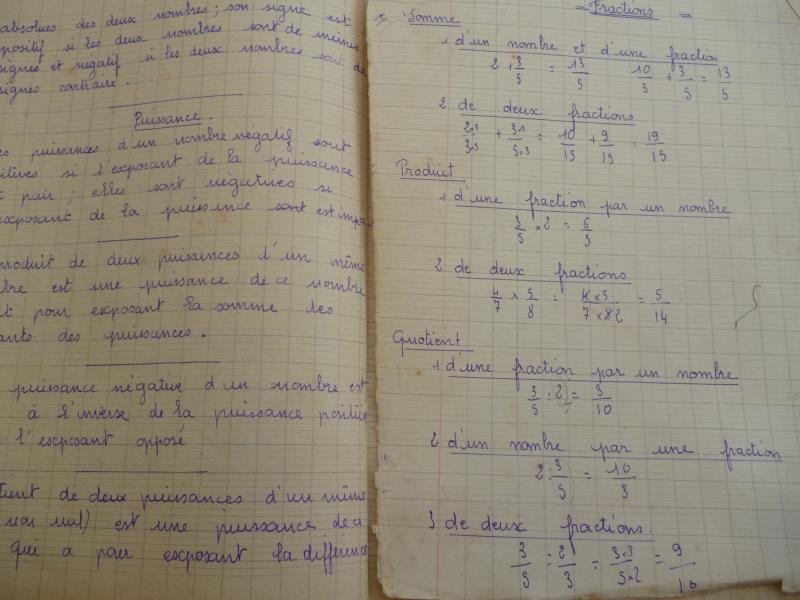 absolues des deux nombres ; son signe est
positif si les deux nombres sont de mêmes
signes et negatif si les deux nombres sont de
signes contraire.
Puissance.
es puissances d'un nombre negatif sont
itives si l'exposant de la puissance
t pair ; elles sont négatives si
exposant de la puissance sont est impai
roduit de deux puissances d'un même
bre est une puissance de ce nombre
t pour exposant la somme des
ants des puissances.
puissance négative d'un nombre est
à l'inverse de la puissance positive
l'exposant opposé
tient de deux puissances d'un même
non nul) est une puissance de c
qui a pour exposant la différence
= Fractions =
Somme
1 d'un nombre et d'une fraction
2 + 3/5 = 13/5 10/5 + 3/5 = 13/5
2 de deux fractions
2.5/3.5 + 3.3/5.3 = 10/15 + 9/15 = 19/15
Produit
1 d'une fraction par un nombre
3/5 × 2 = 6/5
2 de deux fractions
4/7 × 5/8 = 4×5/7×82 = 5/14
Quotient
1 d'une fraction par un nombre
3/5 : 2 = 3/10
2 d'un nombre par une fraction
2 : 3/5 = 10/3
3 de deux fractions.
3/5 : 2/3 = 3.3/5×2 = 9/10